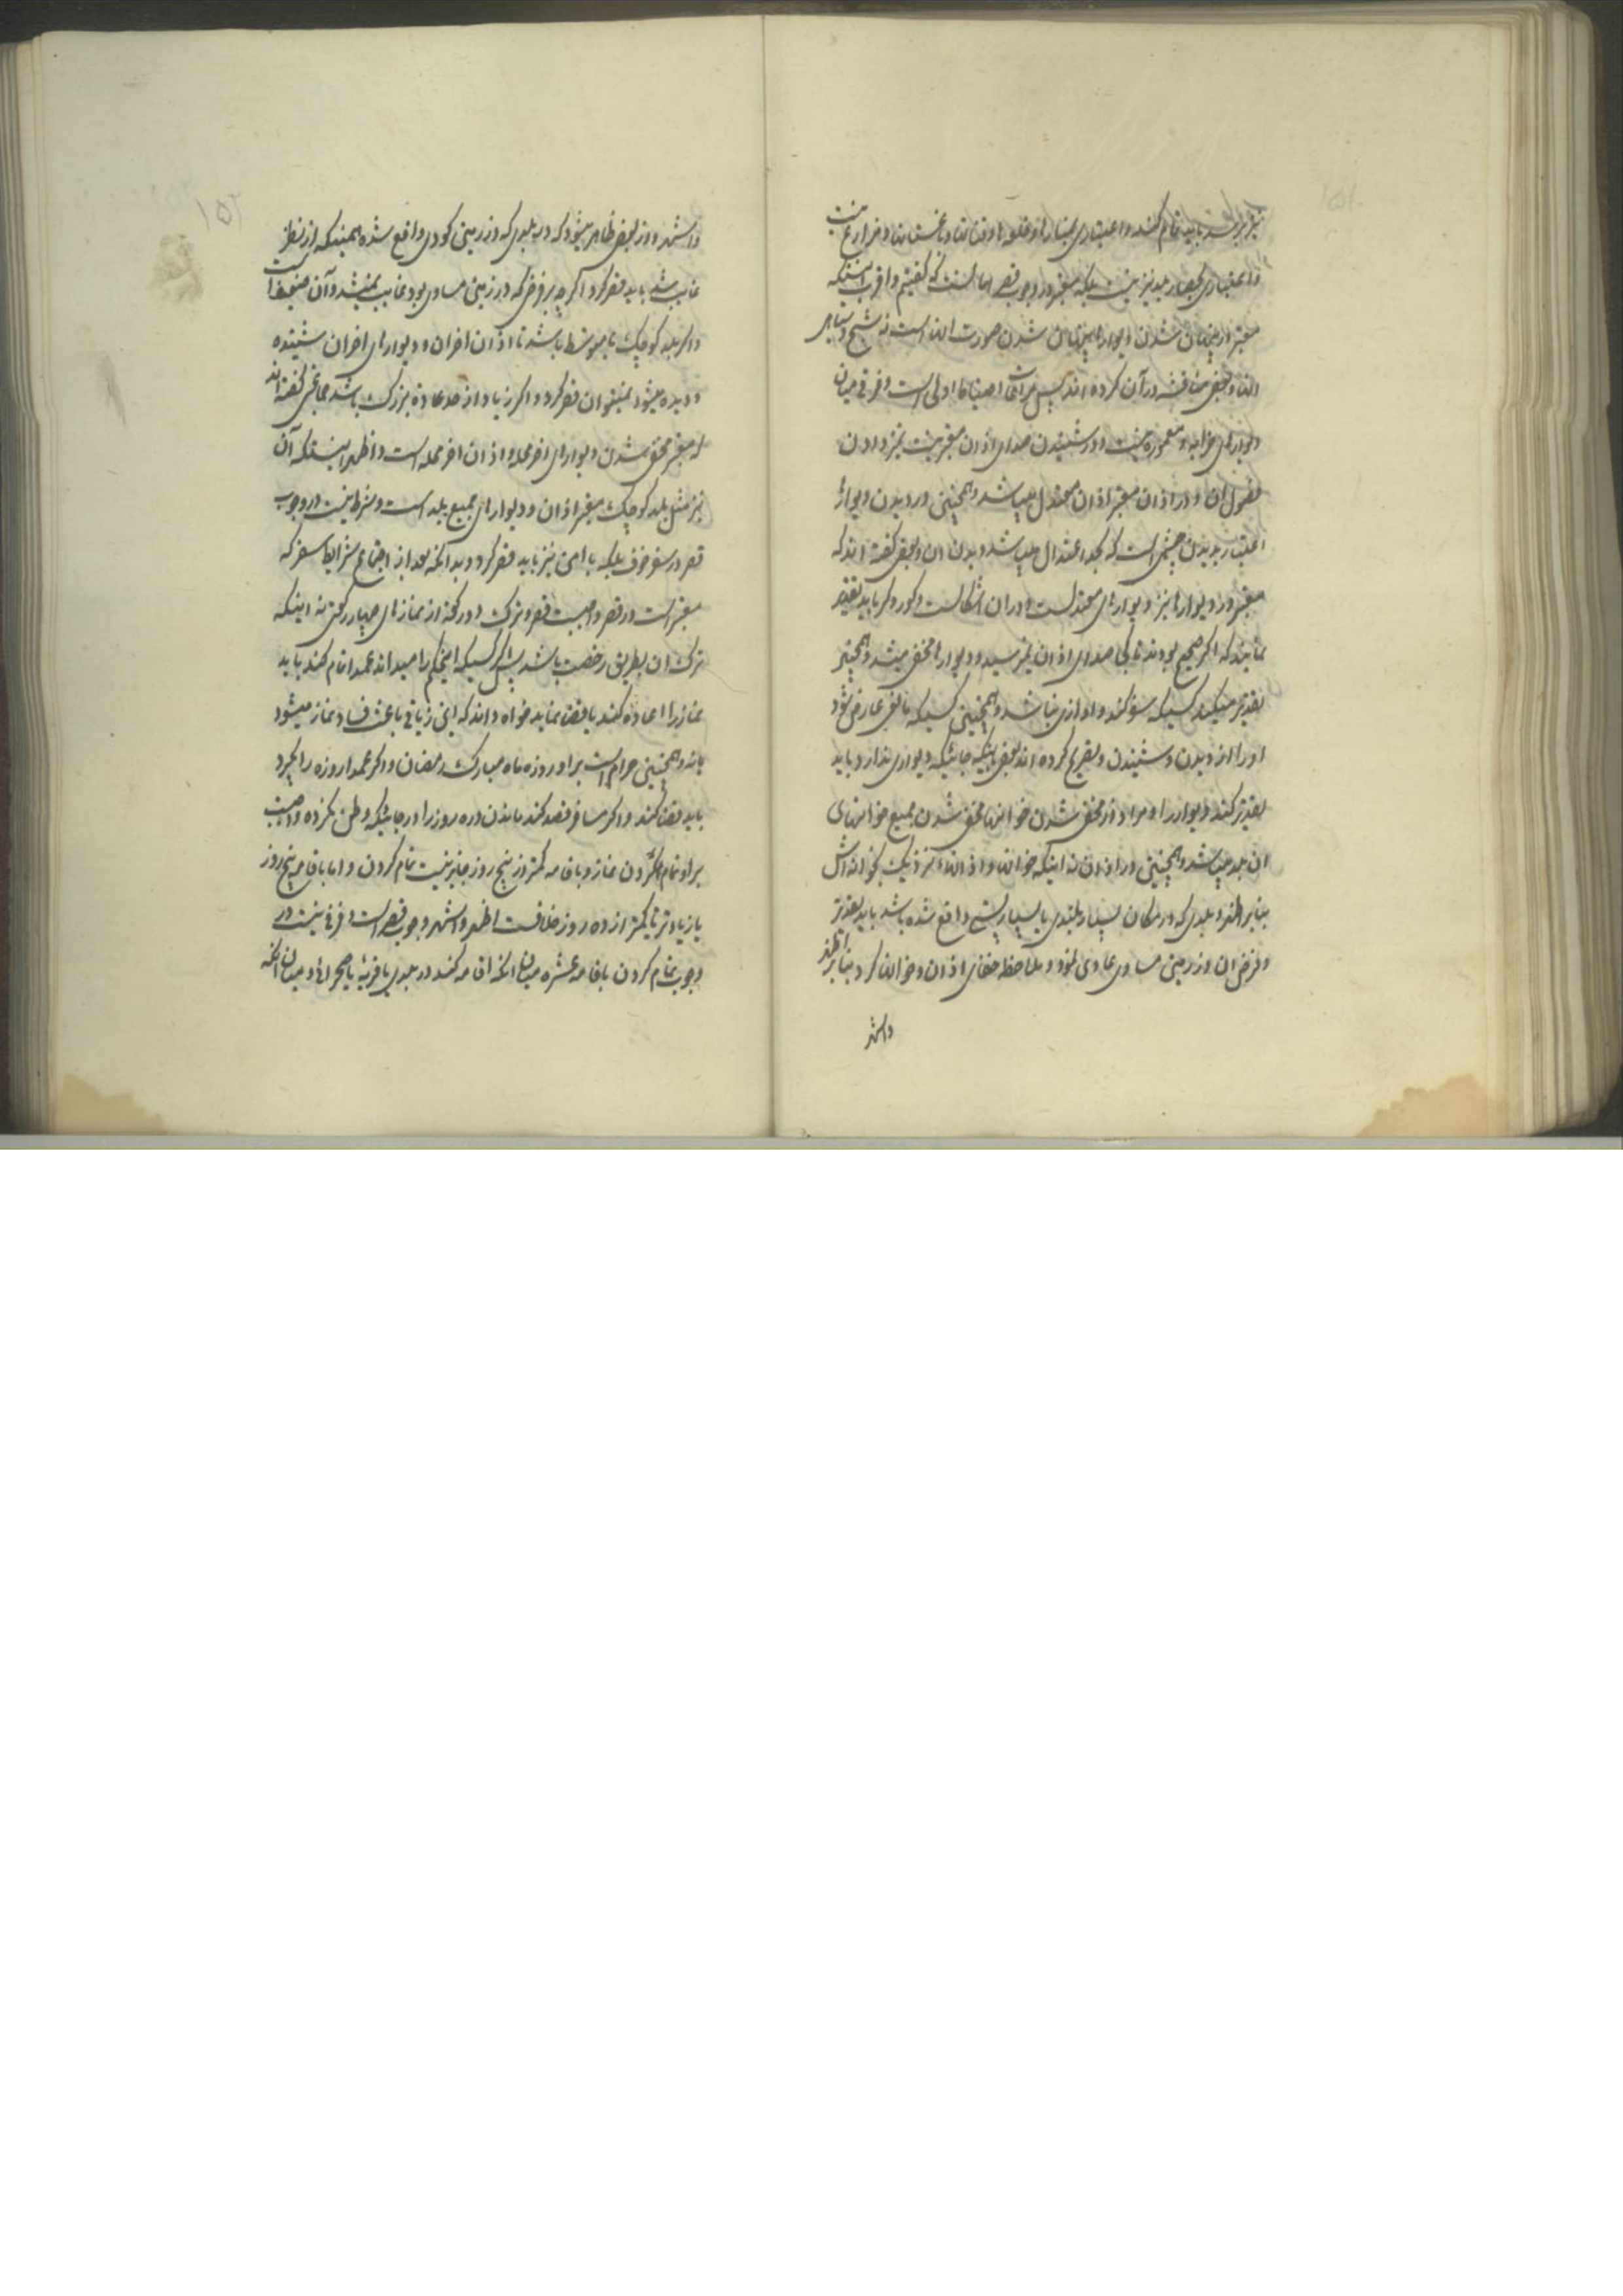 نیز برسد باید تمام کند و اعتباری بمنارها و قلعه‌ها و قبابها و باغستانها و مزارع نیست
و اعتباری بحصار بلد نیز نیست بلکه معتبر در وجوب قصر امارتست که گفتیم و اقرب اینستکه
معتبر از پنهان شدن دیوارها پنهان شدن صورت آنهاست نه شبح و سیاهی
آنها و بعضی مناقشه در آن کرده‌اند پس مراعات احتیاط اولی است و فرقی میان
دیوارهای خرابه و معموره نیست و در شنیدن صدای اذان معتبر نیست تمیز دادن
فصول آن و در اذان معتبر اذان معتدل میباشد و همچنین در دیدن دیوارها
اعتبار بدیدن چشمی است که بحد اعتدال میباشد دیدن آن و بعضی گفته‌اند که
معتبر در دیوارها نیز دیوارهای معتدلست و در آن اشکالست و کور و کر باید تقدیر
نمایند که اگر صحیح بودند تا کی صدای اذان نمیرسید و دیوارها مخفی میشد و همچنین
تقدیر میکند کسیکه سفر کند و اوازی نباشد و همچنین کسیکه مانعی عارض شود
او را از دیدن و شنیدن و تصریح کرده‌اند بعضی باینکه جائیکه دیواری ندارد باید
تقدیر کند دیوار را و مراد از مخفی شدن خوانها مخفی شدن جمیع خوانهای
آن بلد میباشد و همچنین در اذان نه اینکه خوانها و اذانهای نزدیک بخوانه‌اش
بنابر اظهر و بلدی که در مکان بسیار بلندی یا بسیار پستی واقع شده باشد باید تقدیر
و فرض آن در زمین مساوی عادی نمود و ملاحظه خفای اذان و خوانها کرد بنابر اظهر
و اشهر
۱۵۲
و اشهر و از بعضی ظاهر میشود که در بلدی که در زمین گودی واقع شده همینکه از نظر
غایب شد باید قصر کرد اگرچه بر فرضی که در زمین مساوی بود غایب نمیشد و آن ضعیفست
و اگر بلد کوچک یا متوسط باشد تا اذان اخر آن و دیوارهای اخر آن شنیده
و دیده میشود نمیتوان قصر کرد و اگر زیاد از حد عادة بزرگ باشد جماعتی گفته‌اند
که معتبر مخفی شدن دیوارهای اخر محله و اذان اخر محله است و اظهر اینستکه آن
نیز مثل بلد کوچک معتبر اذان و دیوارهای جمیع بلد است و شرط نیست در وجوب
قصر در سفر خوف بلکه با امن نیز باید قصر کرد و بدانکه بعد از اجتماع شرایط سفر که
معتبر است در قصر واجبست قصر و ترک دو رکعت از نمازهای چهار رکعتی نه اینکه
ترک آن بطریق رخصت باشد پس اگر کسیکه این حکم را میداند عمدا تمام کند باید
نماز را اعاده کند یا قضا نماید خواه داند که این زیادتی باعث فساد نماز میشود
یا نه و همچنین حرام است بر او روزه ماه مبارک رمضان و اگر عمدا روزه را بگیرد
باید قضا کند و اگر مسافر قصد کند ماندن ده روز را در جائیکه وطن نکرده واجبست
بر او تمام کردن نماز و باقامه کمتر از پنج روز جایز نیست تمام کردن و اما باقامه پنج روز
یا زیادتر تا کمتر از ده روز خلافست اظهر و اشهر وجوب قصر است و فرقی نیست در
وجوب تمام کردن باقامه عشره میان آنکه اقامه کند در بلدی یا قریهٔ یا صحرائی و میان آنکه